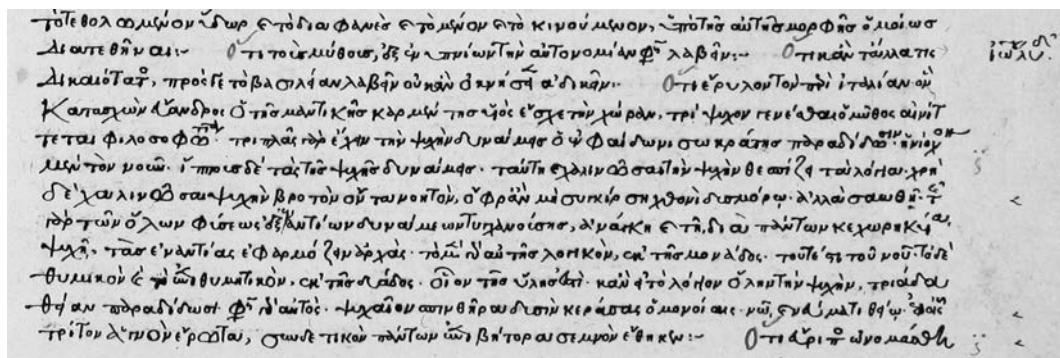 τότε θολούμενον ὕδωρ ἐς τὸ διαφανὲς ἐς τὸ μένον ἐς τὸ κινούμενον, ὑπὸ τῆς αὐτῆς μορφῆς ὁμοίως
διατεθῆναι:- Ὅτι τοῖς μύθοις, ἐξ ἐνυπνίων τὴν αὐτονομίαν φησὶ λαβεῖν:- Ὅτι κἂν τἄλλα τις
δικαιότατος, πρός γε τὸ βασιλείαν λαβεῖν οὐκ ἂν ὀκνήσειεν ἀδικεῖν:- Ὅτι ἔρυλον τὸν περὶ ἰταλίαν ὃν
κατασχὼν εὔανδρος ὁ τῆς μαντικῆς καρμέντης υἱὸς ἔσχε τὴν χώραν, τρίψυχον γενέσθαι ὁ μῦθος αἰνίτ
τεται φιλοσοφῶν· τριπλᾶς γὰρ ἔχειν τὴν ψυχὴν δυνάμεις ὁ ἐν φαίδωνι σωκράτης παραδίδωσιν· ἡνίοχον
μὲν τὸν νοῦν· ἵππους δὲ τὰς τῆς ψυχῆς δυνάμεις· ταύτῃ χαλινῶσαι τὴν ψυχὴν θεσπίζει τὰ λόγια· χρὴ
δὲ χαλινῶσαι ψυχὴν βροτὸν ὄντα νοητὸν, ὄφρα μὴ συγκύρσῃ χθονὶ δυσμόρῳ· ἀλλὰ σαωθῇ· τῆς
γὰρ τῶν ὅλων φύσεως ἐξ ἐναντίων δυνάμεων τυγχανούσης, ἀνάγκη ἐστὶ τῇ διὰ πάντων κεχωρηκυίᾳ
ψυχῇ, τὰς ἐναντίας ἐφαρμόζειν ἀρχάς· τὸ μὲν αὐτῆς λογικὸν, ἐκ τῆς μονάδος· τουτέστι τοῦ νοῦ· τὸ δὲ
θυμικὸν καὶ τὸ ἐπιθυμητικὸν, ἐκ τῆς δυάδος· οἷον τῆς ὕλης ἐστί· τὸ λόγιον ὅλην τὴν ψυχὴν, τριάδα
θείαν παραδίδωσι· φησὶ γὰρ αὐτός· ψυχαῖον σπινθῆρα δυσὶν κεράσας ὁμονοίαις· νῷ, νεύματι θείῳ· ἐφ' οἷς
τρίτον ἁγνὸν ἔρωτα, συνδετικὸν πάντων ἐπιβήτορα σεμνὸν ἔθηκεν:- Ὅτι ὠνομάσθη